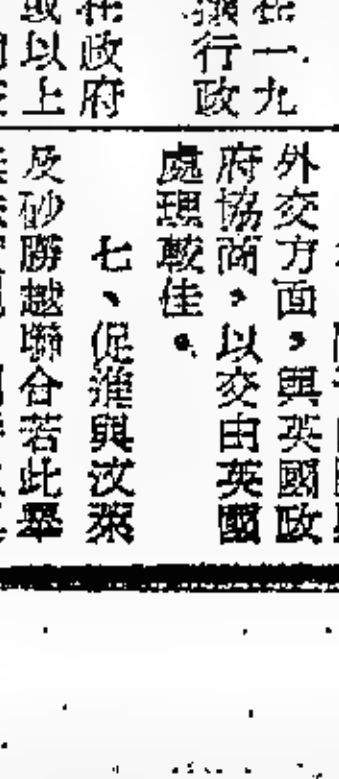 一九
行政
在政府
或以上
外交方面，與英國政
府協商，以交由英國
處理較佳。
七、促進與汶萊
及砂勝越聯合若此舉